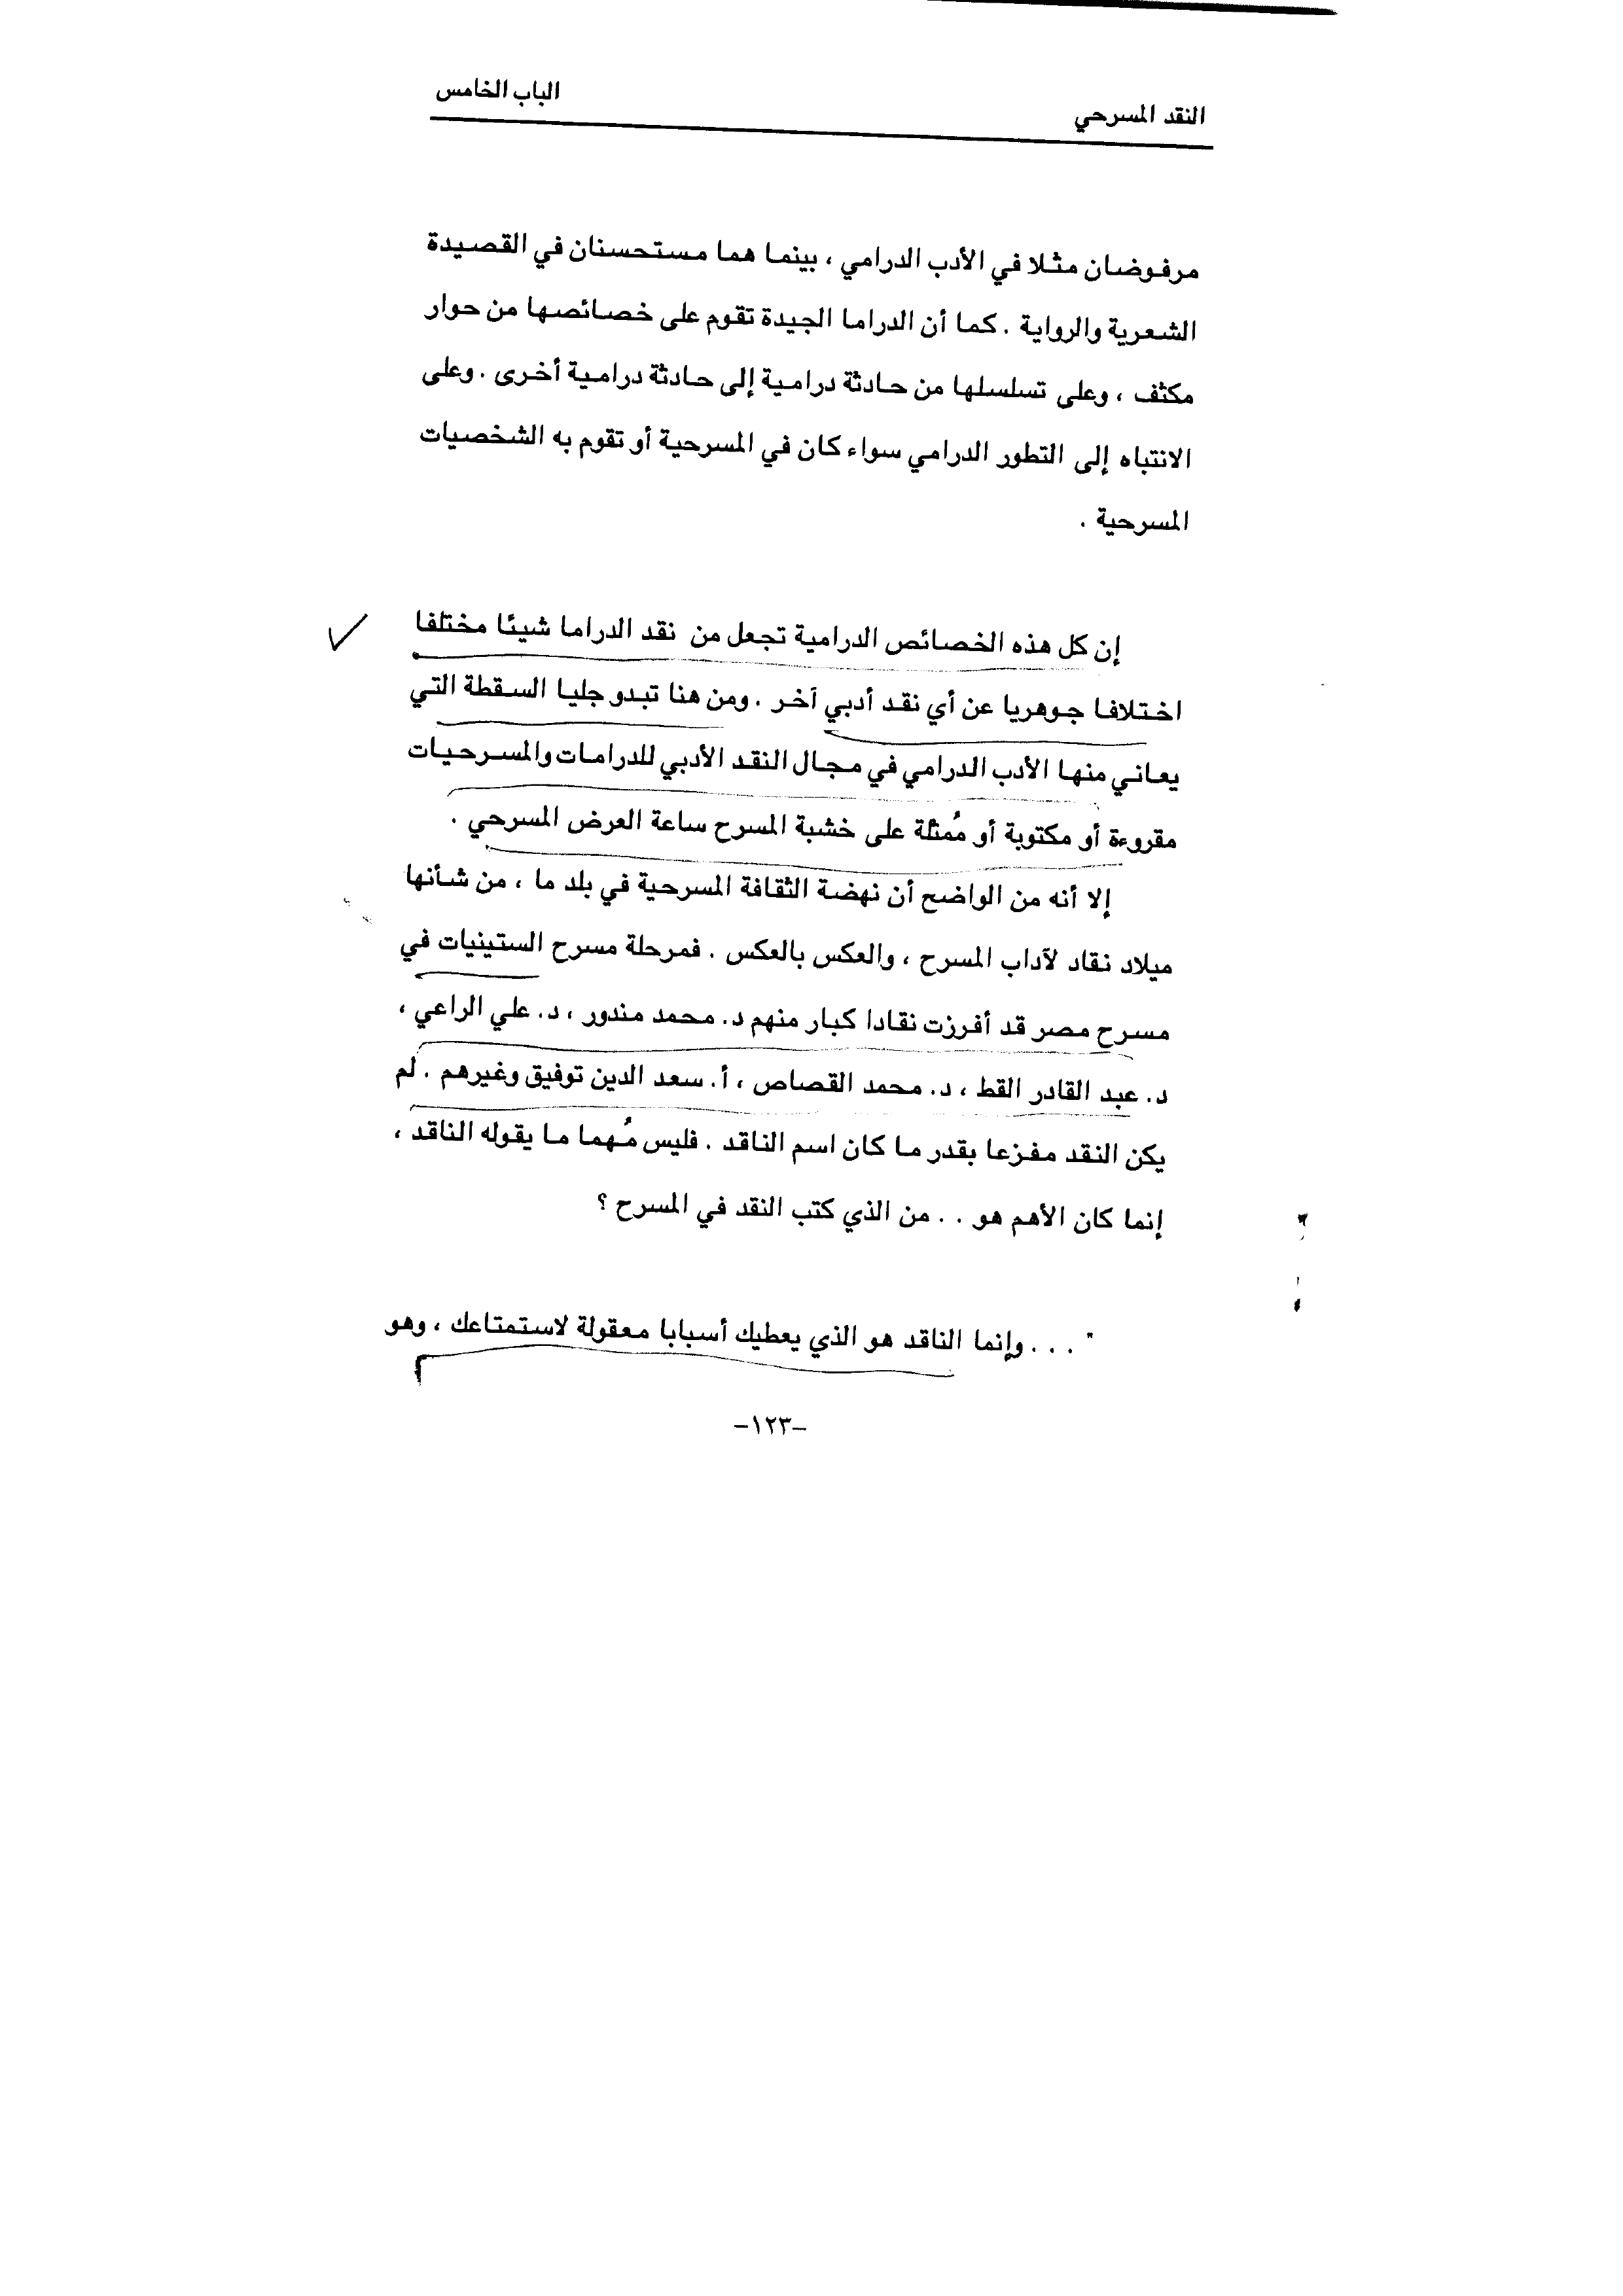 النقد المسرحي
الباب الخامس
مرفوضان مثلا في الأدب الدرامي ، بينما هما مستحسنان في القصيدة
الشعرية والرواية . كما أن الدراما الجيدة تقوم على خصائصها من حوار
مكثف ، وعلى تسلسلها من حادثة درامية إلى حادثة درامية أخرى . وعلى
الانتباه إلى التطور الدرامي سواء كان في المسرحية أو تقوم به الشخصيات
المسرحية .
إن كل هذه الخصائص الدرامية تجعل من نقد الدراما شيئا مختلفا
اختلافا جوهريا عن أي نقد أدبي آخر . ومن هنا تبدو جليا السقطة التي
يعاني منها الأدب الدرامي في مجال النقد الأدبي للدرامات والمسرحيات
مقروءة أو مكتوبة أو مُمثلة على خشبة المسرح ساعة العرض المسرحي .
إلا أنه من الواضح أن نهضة الثقافة المسرحية في بلد ما ، من شأنها
ميلاد نقاد لآداب المسرح ، والعكس بالعكس . فمرحلة مسرح الستينيات في
مسرح مصر قد أفرزت نقادا كبار منهم د. محمد مندور ، د. علي الراعي ،
د. عبد القادر القط ، د. محمد القصاص ، أ. سعد الدين توفيق وغيرهم . لم
يكن النقد مفزعا بقدر ما كان اسم الناقد . فليس مُهما ما يقوله الناقد ،
إنما كان الأهم هو . . من الذي كتب النقد في المسرح ؟
" . . . وإنما الناقد هو الذي يعطيك أسبابا معقولة لاستمتاعك ، وهو
-١٢٣-